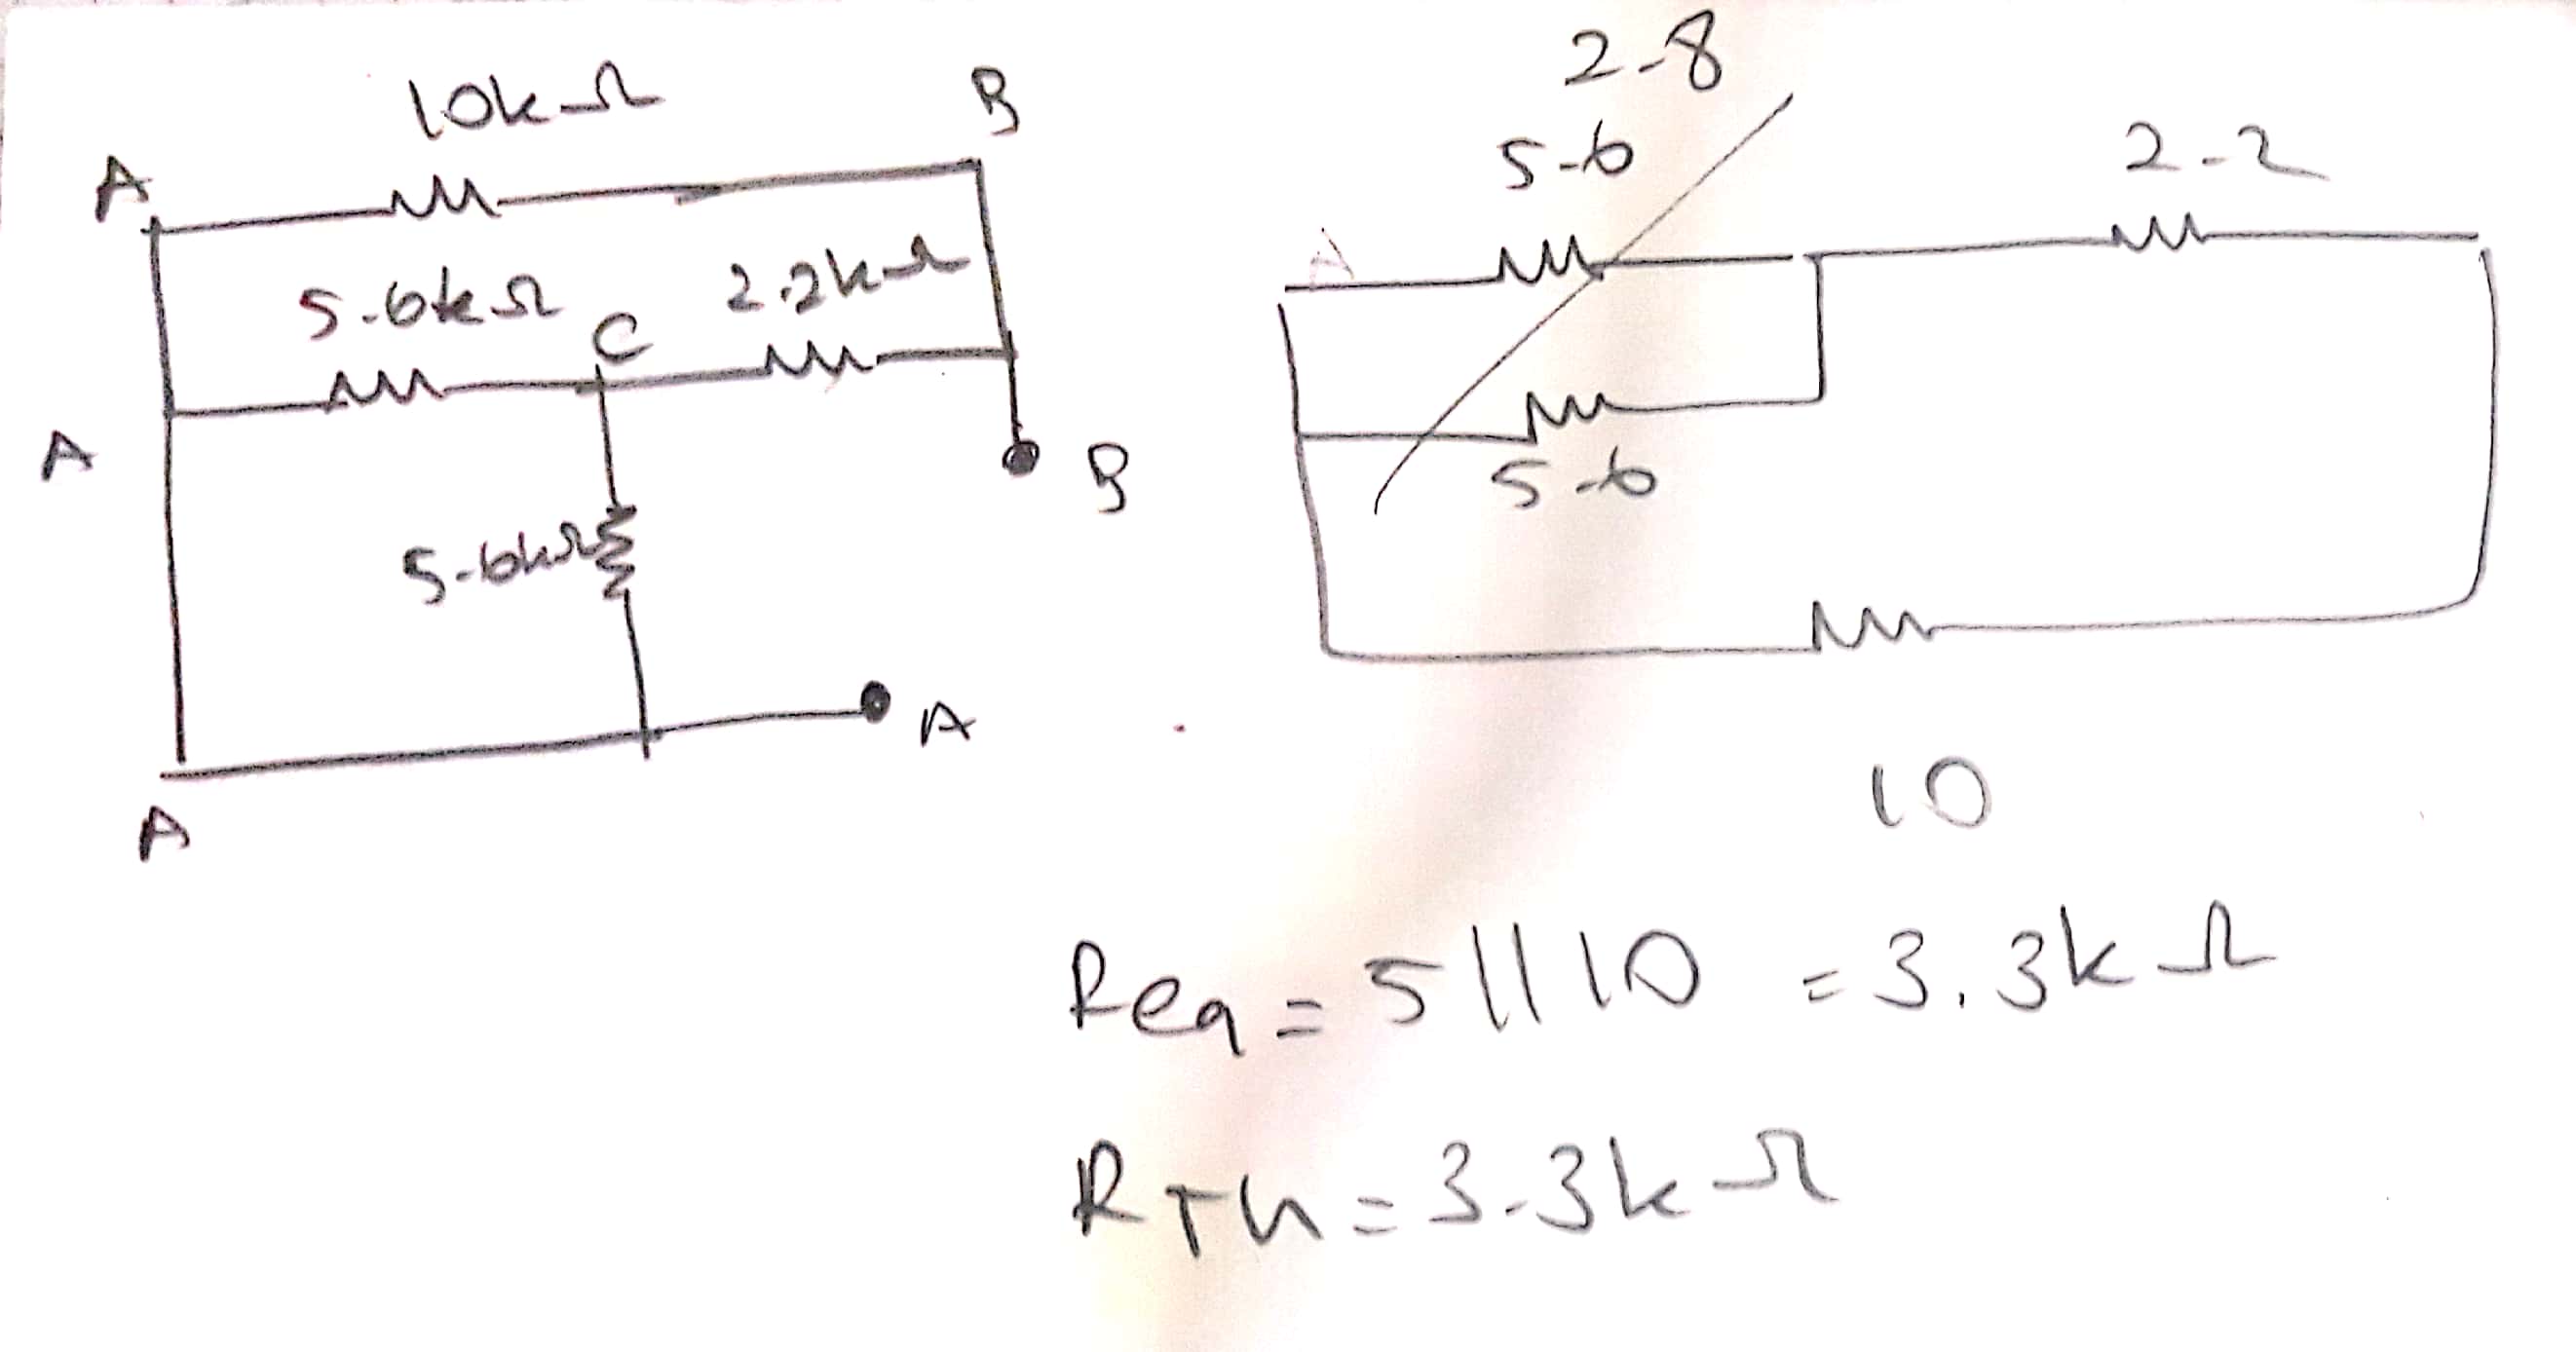 10kΩ
A
B
5.6kΩ
C
2.2kΩ
A
B
5.6kΩ
A
A
2.8
5.6
2.2
A
5.6
10
Req = 5 || 10 = 3.3kΩ
RTh = 3.3kΩ